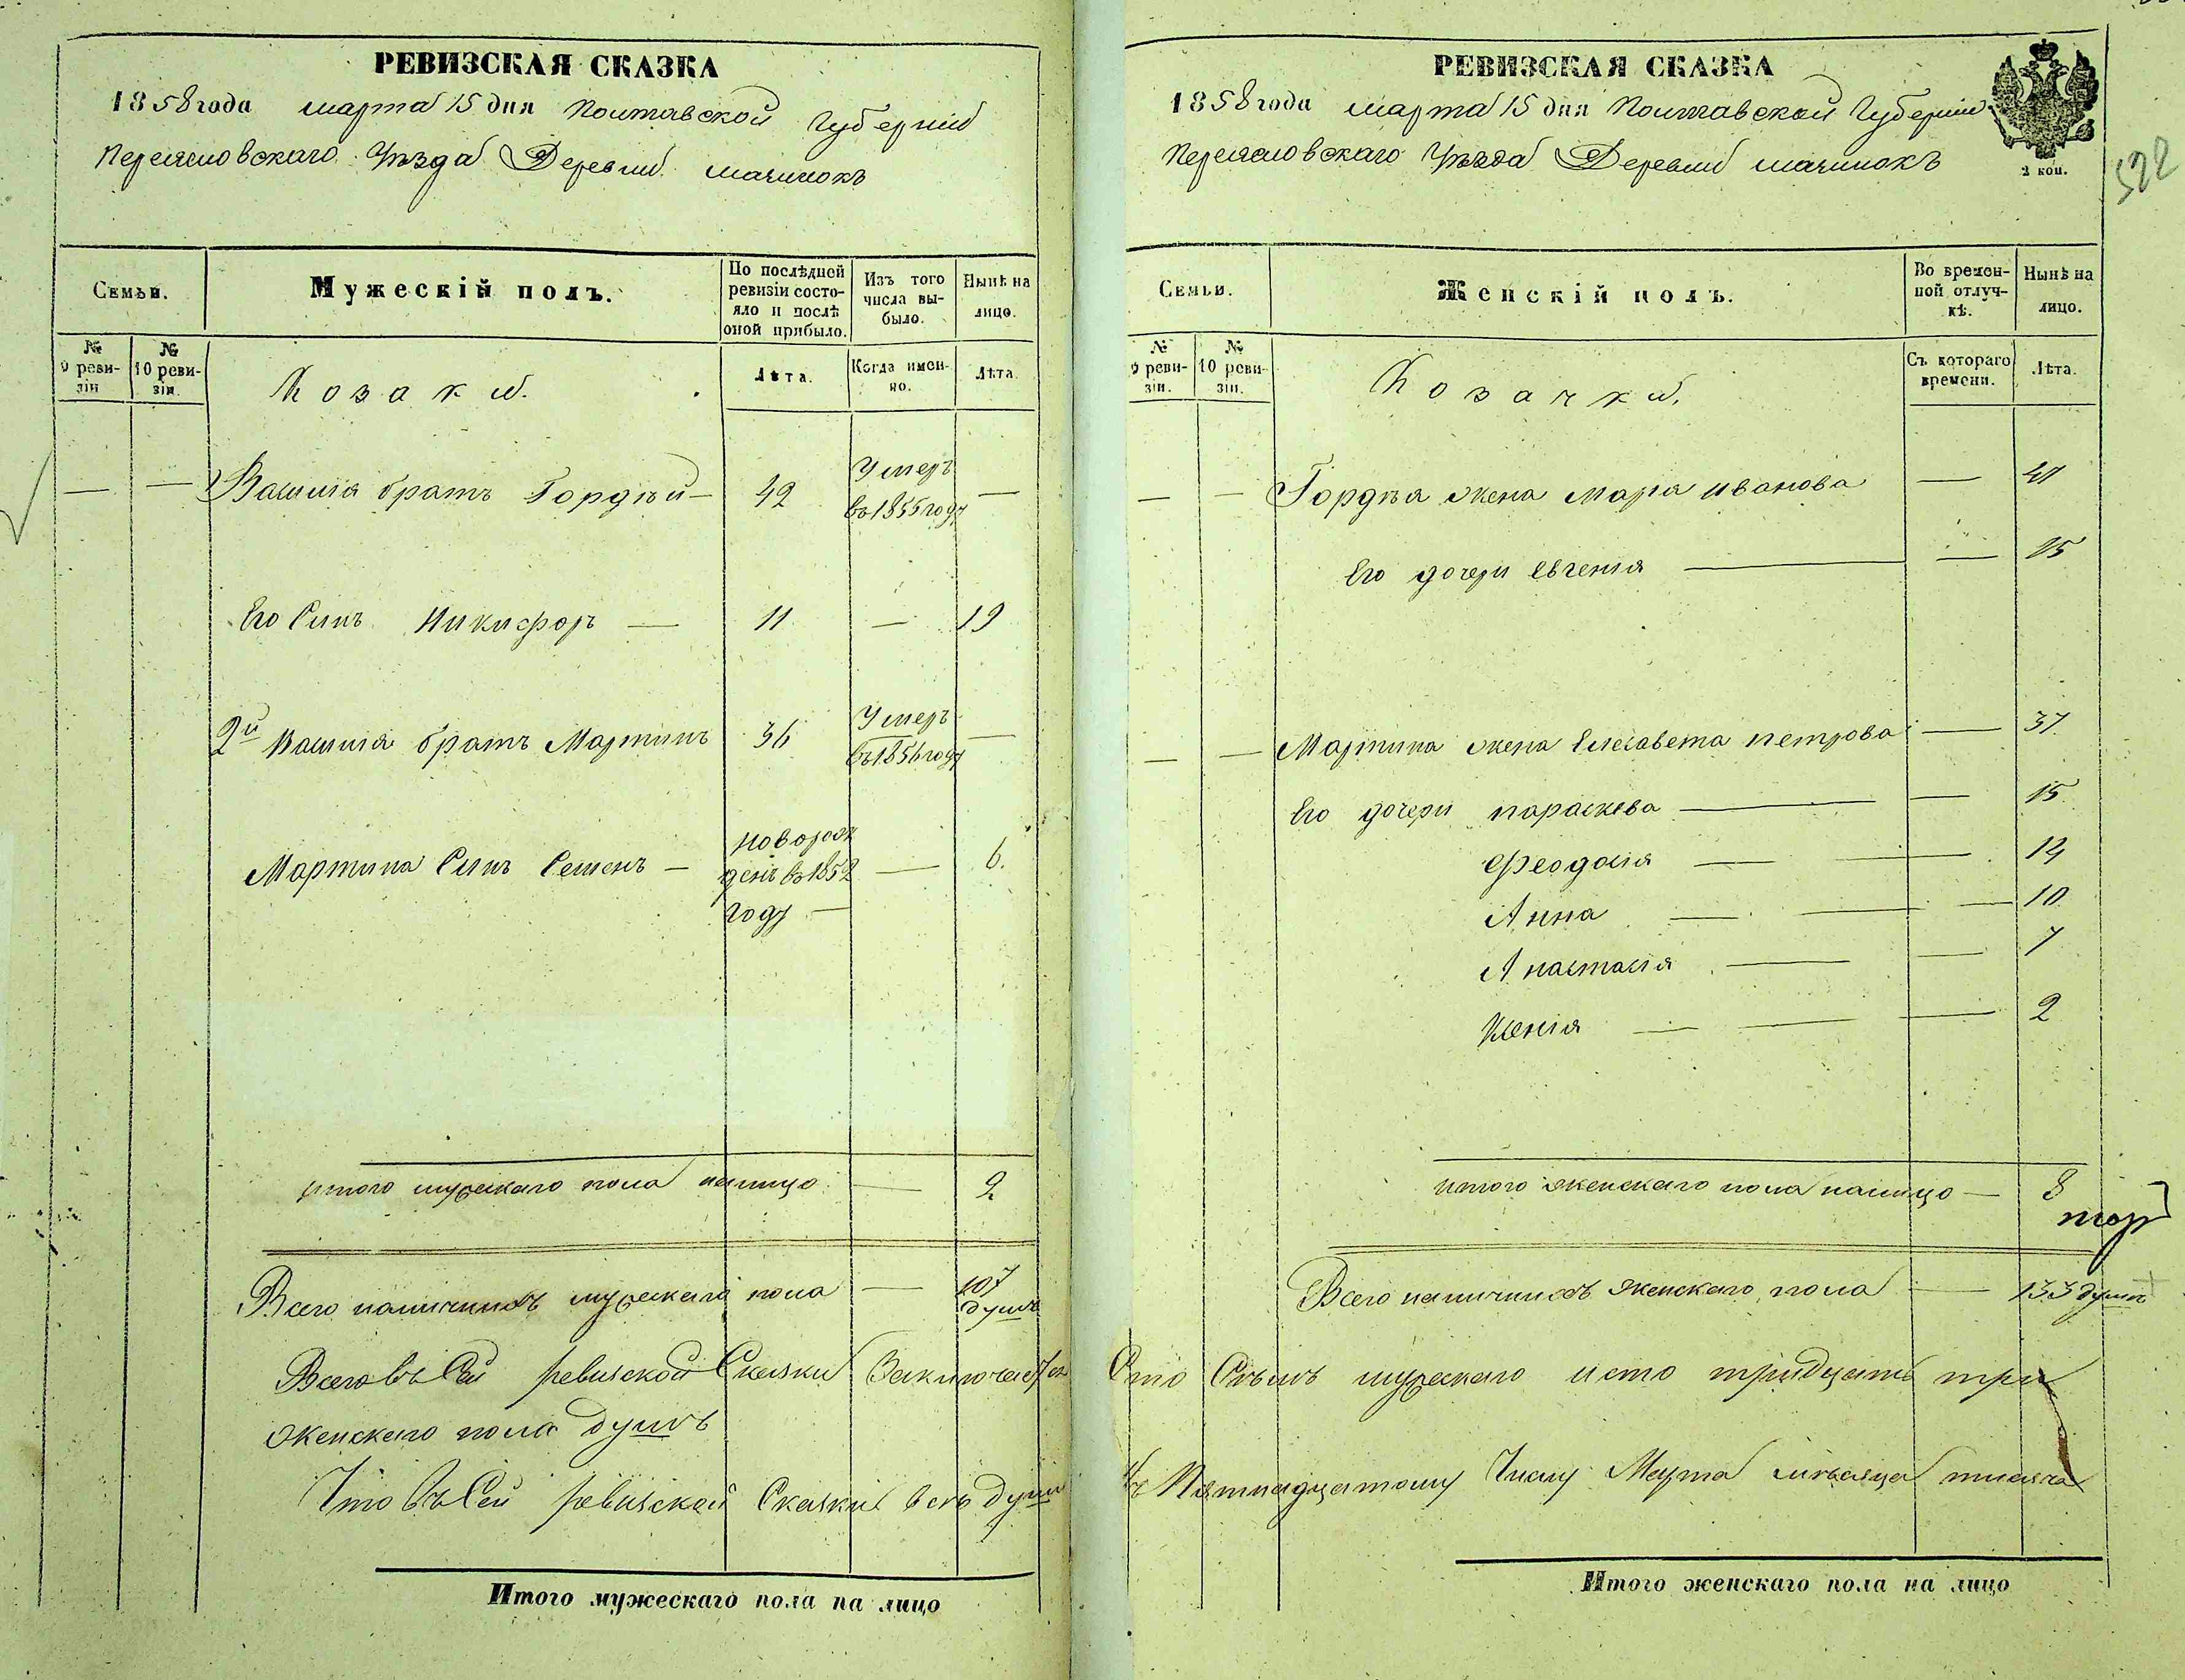 РЕВИЗСКАЯ СКАЗКА
1858 года марта 15 дня Полтавской Губернии
Переяславского Уѣзда Деревни
Семьи.
Мужескій полъ.
По послѣдней ревизіи состояло и послѣ оной прибыло.
Изъ того числа выбыло.
Нынѣ на лицо.
№ 9 ревизіи
№ 10 ревизіи.
Козаки.
Лѣта.
Когда именно.
Лѣта.
— — Василія братъ Гордѣй — 42 Умеръ въ 1855 году —
Его Сынъ Никифоръ — 11 — 19
2й Василія братъ Мартинъ 36 Умеръ въ 1856 году —
Мартина Сынъ Семенъ — новорожденъ въ 1852 году — — 6.
итого мужескаго пола налицо — 2
Всего наличныхъ мужескаго пола — 107 душъ
Всего въ Сей ревизской Сказки Заключается
женскаго пола душъ
Что Въ Сей ревизской Сказки всѣ души
Итого мужескаго пола на лицо
РЕВИЗСКАЯ СКАЗКА
1858 года марта 15 дня Полтавской Губернии
Переяславского Уѣзда Деревни
2 коп.
522
Семьи.
Женскій полъ.
Во временной отлучкѣ.
Нынѣ на лицо.
№ 9 ревизіи.
№ 10 ревизіи.
Козачки.
Съ котораго времени.
Лѣта.
— — Гордѣя жена Марія Иванова —
Его дочери Евгенія — —
— — Мартина жена Елисавета Петрова — 37
Его дочери Параскева — — 15
Феодосія — — 12
Анна — — — 10
Анастасія — — 7
Ксенія — — — 2
итого женскаго пола налицо — 8
Всего наличныхъ женскаго пола — 133 душъ
Сто Сѣмъ мужескаго и сто тридцать три
Къ Пятнадцатому Числу Марта мѣсяца тысяча
Итого женскаго пола на лицо